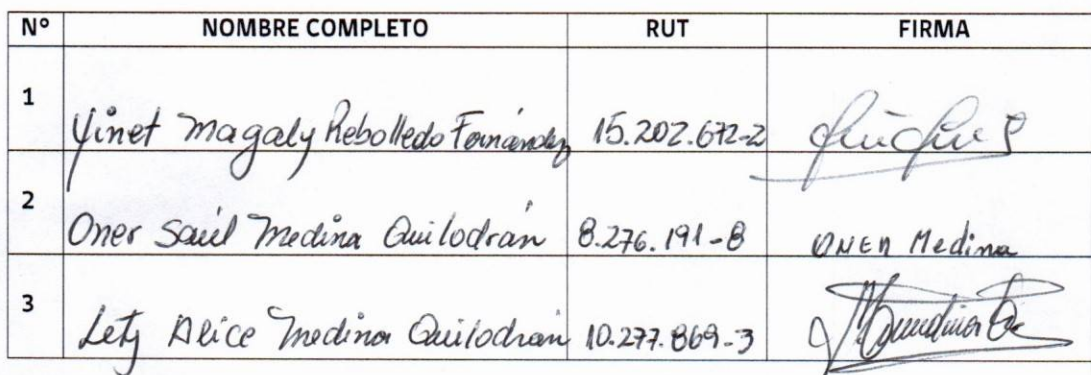 N° NOMBRE COMPLETO RUT FIRMA
1 Yinet Magaly Rebolledo Fernández 15.202.672-2
2 Oner Saúl Medina Quilodrán 8.276.191-8 ONER Medina
3 Lety Alice Medina Quilodran 10.277.869-3